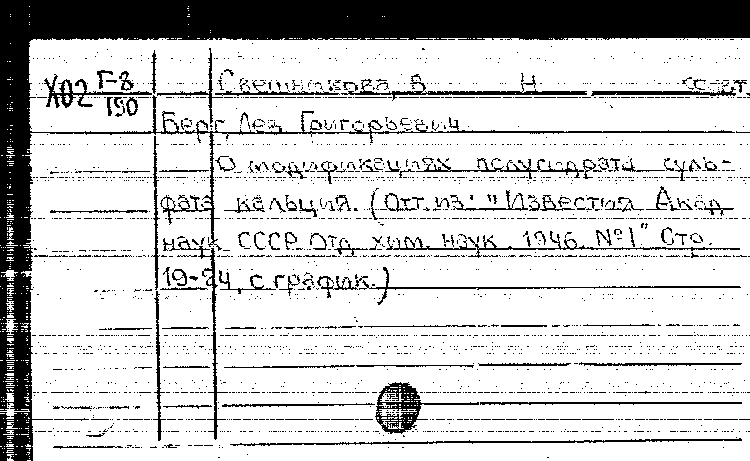 Х02 Г-8/190
Свешникова, В Н соавт.
Берг, Лев Григорьевич
О модификациях полугидрата суль-
фата кальция. (Отт. из: "Известия Акад.
наук СССР. Отд. хим. наук. 1946. №1" Стр.
19-24, с график.)